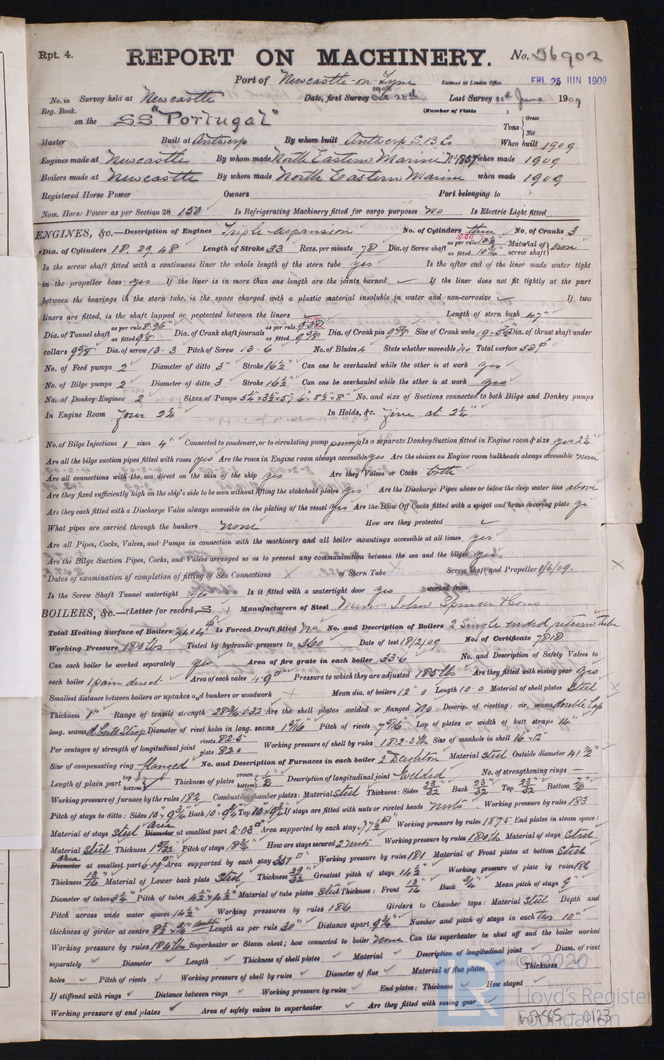 Rpt. 4. REPORT ON MACHINERY. No. 56902
Port of Newcastle-on-Tyne Received at London Office FRI. 25 JUN 1909
No. in Survey held at Newcastle Date, first Survey Oct 28th Last Survey June 1909
Reg. Book. (Number of Visits
on the SS "Portugal" Tons Gross Net
Master Built at Antwerp By whom built Antwerp S.B. Co When built 1909
Engines made at Newcastle By whom made North Eastern Marine when made 1909
Boilers made at Newcastle By whom made North Eastern Marine when made 1909
Registered Horse Power Owners Port belonging to
Nom. Horse Power as per Section 28 150 Is Refrigerating Machinery fitted for cargo purposes No Is Electric Light fitted
ENGINES, &c.—Description of Engines Triple expansion No. of Cylinders three No. of Cranks 3
Dia. of Cylinders 18. 29. 48 Length of Stroke 33 Revs. per minute 78 Dia. of Screw shaft as per rule as fitted Material of screw shaft iron
Is the screw shaft fitted with a continuous liner the whole length of the stern tube yes Is the after end of the liner made water tight
in the propeller boss yes If the liner is in more than one length are the joints burned If the liner does not fit tightly at the part
between the bearings in the stern tube, is the space charged with a plastic material insoluble in water and non-corrosive If two
liners are fitted, is the shaft lapped or protected between the liners Length of stern bush 47"
Dia. of Tunnel shaft as per rule 8.96" as fitted Dia. of Crank shaft journals as per rule as fitted Dia. of Crank pin Size of Crank webs Dia. of thrust shaft under
collars 9 7/8 Dia. of screw 13-3 Pitch of Screw 13-6 No. of Blades 4 State whether moveable No Total surface 53 ft
No. of Feed pumps 2 Diameter of ditto 3" Stroke 16½" Can one be overhauled while the other is at work yes
No. of Bilge pumps 2 Diameter of ditto 3" Stroke 16½" Can one be overhauled while the other is at work yes
No. of Donkey Engines 2 Sizes of Pumps No. and size of Suctions connected to both Bilge and Donkey pumps
In Engine Room four 2½" In Holds, &c. five at 2½"
No. of Bilge Injections 1 sizes 4" Connected to condenser, or to circulating pump pump Is a separate Donkey Suction fitted in Engine room & size yes 2½"
Are all the bilge suction pipes fitted with roses yes Are the roses in Engine room always accessible yes Are the sluices on Engine room bulkheads always accessible none
Are all connections with the sea direct on the skin of the ship yes Are they Valves or Cocks both
Are they fixed sufficiently high on the ship's side to be seen without lifting the stokehold plates yes Are the Discharge Pipes above or below the deep water line above
Are they each fitted with a Discharge Valve always accessible on the plating of the vessel yes Are the Blow Off Cocks fitted with a spigot and brass covering plate yes
What pipes are carried through the bunkers none How are they protected
Are all Pipes, Cocks, Valves, and Pumps in connection with the machinery and all boiler mountings accessible at all times yes
Are the Bilge Suction Pipes, Cocks, and Valves arranged so as to prevent any communication between the sea and the bilges yes
Dates of examination of completion of fitting of Sea Connections of Stern Tube Screw shaft and Propeller 1/6/09.
Is the Screw Shaft Tunnel watertight Is it fitted with a watertight door yes worked from
BOILERS, &c.—(Letter for record S) Manufacturers of Steel Messrs John Spencer & Sons
Total Heating Surface of Boilers Is Forced Draft fitted No No. and Description of Boilers 2 Single ended return tube
Working Pressure 180 lbs Tested by hydraulic pressure to 360 Date of test 18/2/09 No. of Certificate 7818
Can each boiler be worked separately yes Area of fire grate in each boiler 33.6 No. and Description of Safety Valves to
each boiler 1 pair direct Area of each valve 4.9 Pressure to which they are adjusted 185 lbs Are they fitted with easing gear yes
Smallest distance between boilers or uptakes and bunkers or woodwork Mean dia. of boilers 12' 0 Length 10. 0 Material of shell plates Steel
Thickness 1" Range of tensile strength 28¾ ÷ 32 Are the shell plates welded or flanged No Descrip. of riveting: cir. seams double lap
long. seams Diameter of rivet holes in long. seams 1 1/16 Pitch of rivets 7 7/16 Lap of plates or width of butt straps 14"
Per centages of strength of longitudinal joint rivets 82.5 plate 82.0 Working pressure of shell by rules 182.5 Size of manhole in shell 16 × 12"
Size of compensating ring flanged No. and Description of Furnaces in each boiler 2 Deighton Material Steel Outside diameter 41½"
Length of plain part top bottom Thickness of plates crown bottom Description of longitudinal joint Welded No. of strengthening rings
Working pressure of furnace by the rules 182 Combustion chamber plates: Material Steel Thickness: Sides 23/32 Back 23/32 Top 23/32 Bottom 7/8
Pitch of stays to ditto: Sides Back Top If stays are fitted with nuts or riveted heads nuts Working pressure by rules 183
Material of stays Steel Diameter at smallest part 2.03 Area supported by each stay Working pressure by rules 187.5 End plates in steam space:
Material Steel Thickness Pitch of stays How are stays secured 2 nuts Working pressure by rules 180 lb Material of stays Steel
Diameter at smallest part Area supported by each stay Working pressure by rules 181 Material of Front plates at bottom Steel
Thickness Material of Lower back plate Steel Thickness Greatest pitch of stays 14½" Working pressure of plate by rules 186
Diameter of tubes Pitch of tubes Material of tube plates Steel Thickness: Front Back Mean pitch of stays 9"
Pitch across wide water spaces 14½" Working pressures by rules 186 Girders to Chamber tops: Material Steel Depth and
thickness of girder at centre Length as per rule 30" Distance apart Number and pitch of stays in each two 10"
Working pressure by rules 184 lbs Superheater or Steam chest; how connected to boiler none Can the superheater be shut off and the boiler worked
separately Diameter Length Thickness of shell plates Material Description of longitudinal joint Diam. of rivet
holes Pitch of rivets Working pressure of shell by rules Diameter of flue Material of flue plates Thickness
If stiffened with rings Distance between rings Working pressure by rules End plates: Thickness How stayed
Working pressure of end plates Area of safety valves to superheater Are they fitted with easing gear
© 2020
LR
Lloyd's Register
Foundation